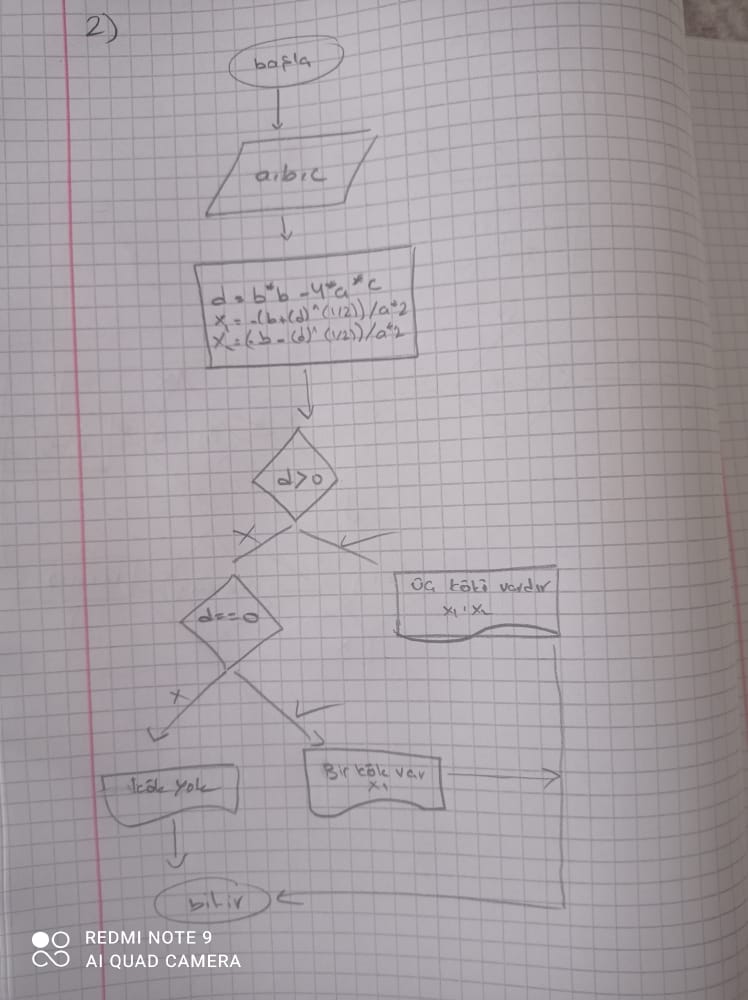 2)
başla
a,b,c
d = b*b - 4*a*c
x₁ = -(b+(d)^(1/2))/a*2
x₂ = (-b-(d)^(1/2))/a*2
d>0
X
üç kökü vardır
x₁, x₂
d==0
X
Kök yok
Bir kök var
x₁
bitir
REDMI NOTE 9
AI QUAD CAMERA